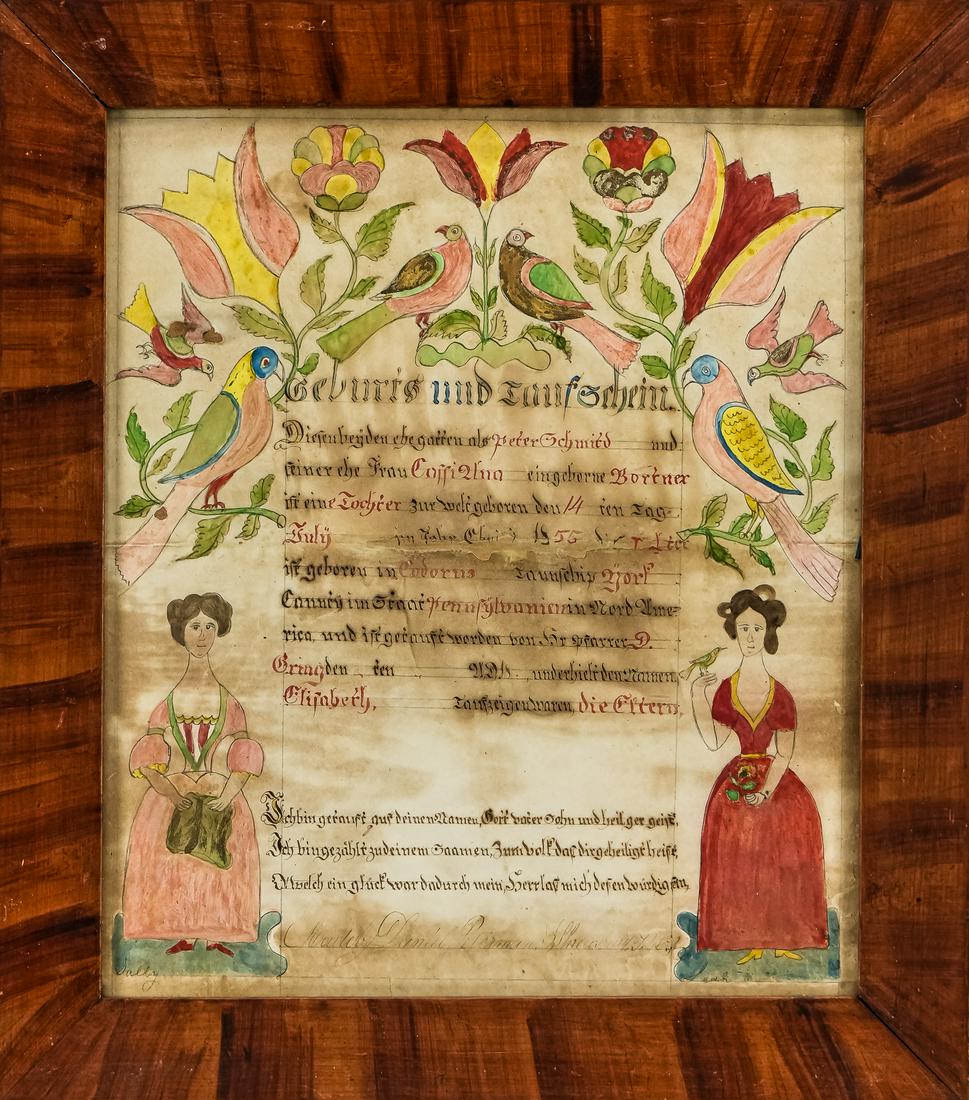 Geburts und Taufschein.
Diesen beyden ehe gatten als Peter Schmitd und
seiner ehe Frau Cassi Ana eingeborne Bortner
ist eine Tochter zur welt geboren den 14 ten Tag
July im Jahr Christi 1856
ist geboren in Codorus Taunschip York
Caunty im Staat Pennsylvanien in Nord Ame-
rica, und ist getauft worden von Hr pfarrer D.
Gring den ten AD18 und erhielt den Namen,
Elisabeth, Taufzeigen waren, die Eltern,
Ich bin getauft auf deinen Namen, Gott vater Sohn und heilger geist,
Ich bin gezählt zu deinem Saamen, Zum volk das dir geheiligt heist,
O welch ein glück war dadurch mein, Herr las mich desen würdig sein,
Daniel Peterman
Sally